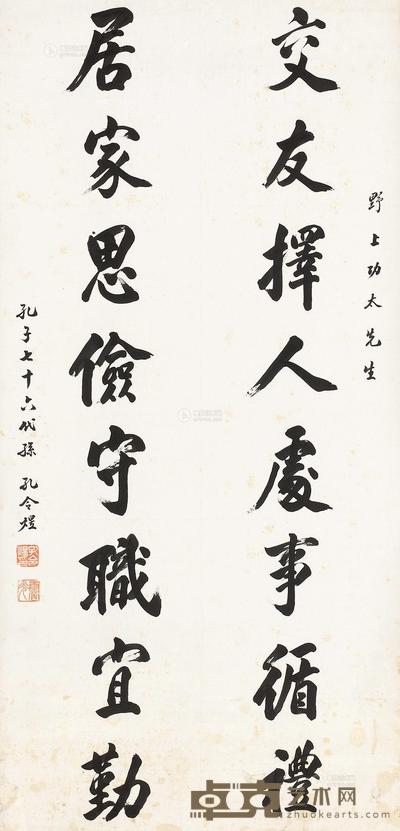 野上功太先生
交友擇人處事循禮
居家思儉守職宜勤
孔子七十六代孫 孔令煜
卓克艺术网
zhuokearts.com